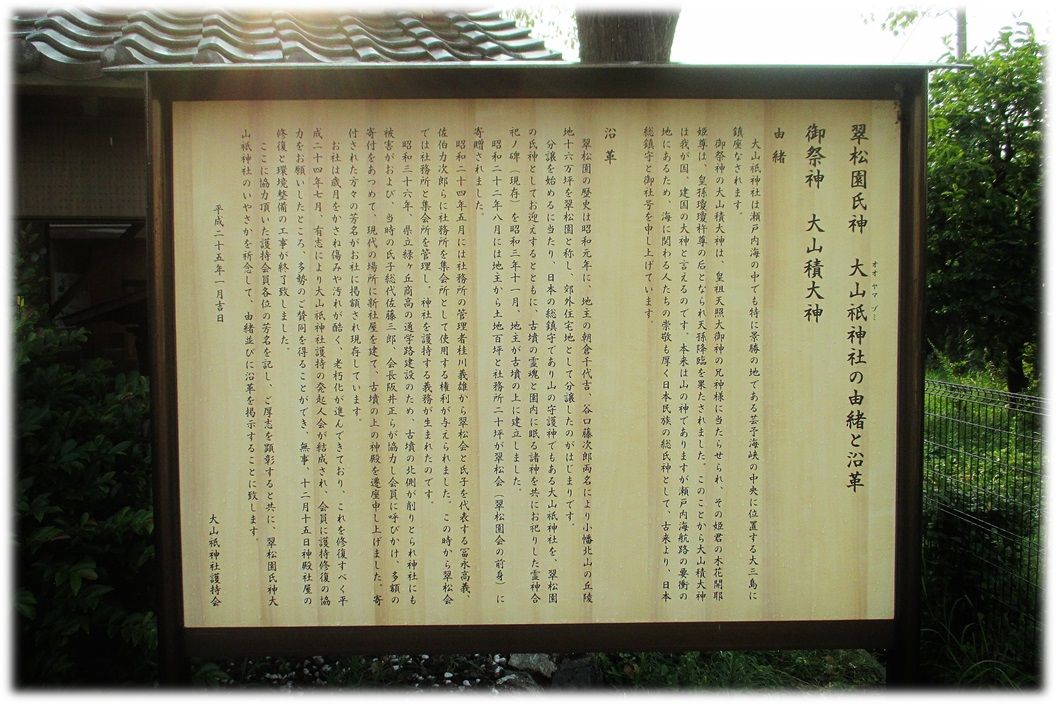 翠松園氏神　大山祇神社の由緒と沿革
オオヤマヅミ
御祭神　大山積大神
由緒
大山祇神社は瀬戸内海の中でも特に景勝の地である芸予海峡の中央に位置する大三島に
鎮座なされます。
御祭神の大山積大神は、皇祖天照大御神の兄神様に当たらせられ、その姫君の木花開耶
姫尊は、皇孫瓊瓊杵尊の后となられ天孫降臨を果たされました。このことから大山積大神
は我が国、建国の大神と言えるのです。本来は山の神でありますが瀬戸内海航路の要衝の
地にあるため、海に関わる人たちの崇敬も厚く日本民族の総氏神として、古来より、日本
総鎮守と御社号を申し上げています。
沿革
翠松園の歴史は昭和元年に、地主の朝倉千代吉、谷口藤次郎両名により小幡北山の丘陵
地十六万坪を翠松園と称し、郊外住宅地として分譲したのがはじまりです。
分譲を始めるに当たり、日本の総鎮守であり山の守護神でもある大山祇神社を、翠松園
の氏神としてお迎えするとともに、古墳の霊魂と園内に眠る諸神を共にお祀りした霊神合
祀ノ碑（現存）を昭和三年十一月、地主が古墳の上に建立しました。
昭和二十二年八月には地主から土地百坪と社務所二十坪が翠松会（翠松園会の前身）に
寄贈されました。
昭和二十四年五月には社務所の管理者桂川義雄から翠松会と氏子を代表する冨永高義、
佐伯力次郎らに社務所を集会所として使用する権利が与えられました。この時から翠松会
では社務所と集会所を管理し、神社を護持する義務が生まれたのです。
昭和三十六年、県立緑ヶ丘商高の通学路建設のため、古墳の北側が削りとられ神社にも
被害がおよび、当時の氏子総代佐藤三郎、会長阪井正らが協力し会員に呼びかけ、多額の
寄付をあつめて、現代の場所に新社屋を建て、古墳の上の神殿を遷座申し上げました。寄
付された方々の芳名がお社に掲額され現存しています。
お社は歳月をかさね傷みや汚れが酷く、老朽化が進んできており、これを修復すべく平
成二十四年七月、有志により大山祇神社護持の発起人会が結成され、会員に護持修復の協
力をお願いしたところ、多勢のご賛同を得ることができ、無事、十二月十五日神殿社屋の
修復と環境整備の工事が終了致しました。
ここに協力頂いた護持会員各位の芳名を記し、ご厚志を顕彰すると共に、翠松園氏神大
山祇神社のいやさかを祈念して、由緒並びに沿革を掲示することに致します。
平成二十五年一月吉日
大山祇神社護持会